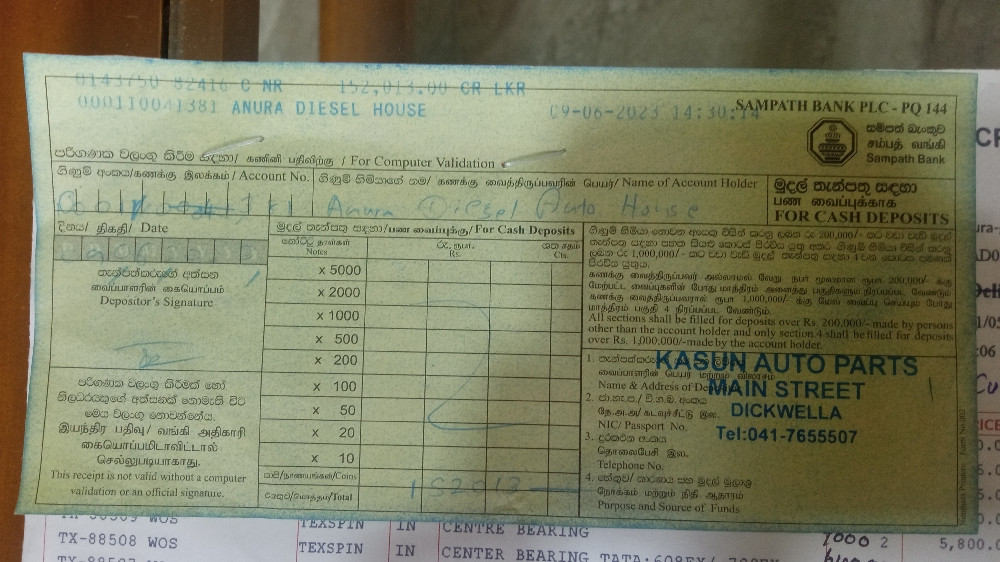 0143750 82416 C NR 152,013.00 CR LKR
000110041381 ANURA DIESEL HOUSE 09-06-2023 14:30:14
SAMPATH BANK PLC - PQ 144
සම්පත් බැංකුව
சம்பத் வங்கி
Sampath Bank
පරිගණක වලංගු කිරීම සඳහා/ கணினி பதிவிற்கு / For Computer Validation
ගිණුම් අංකය/கணக்கு இலக்கம் / Account No.
ගිණුම් හිමියාගේ නම/ கணக்கு வைத்திருப்பவரின் பெயர்/ Name of Account Holder
Anura Diesel Auto House
මුදල් තැන්පතු සඳහා
பண வைப்புக்காக
FOR CASH DEPOSITS
දිනය/ திகதி/ Date
මුදල් තැන්පතු සඳහා/பண வைப்புக்கு/For Cash Deposits
නෝට්ටු தாள்கள்
Notes
රු. ரூபா.
Rs.
ශත சதம்
Cts.
තැන්පත්කරුගේ අත්සන
வைப்பாளரின் கையொப்பம்
Depositor's Signature
x 5000
x 2000
x 1000
x 500
x 200
x 100
x 50
x 20
x 10
කාසි/நாணயங்கள்/Coins
එකතුව/மொத்தம்/Total
152013
පරිගණක වලංගු කිරීමක් හෝ
නිලධරයකුගේ අත්සනක් නොමැති විට
මෙය වලංගු නොවන්නේය.
இயந்திர பதிவு/ வங்கி அதிகாரி
கையொப்பமிடாவிட்டால்
செல்லுபடியாகாது.
This receipt is not valid without a computer
validation or an official signature.
கணக்கு வைத்திருப்பவர் அல்லாமல் வேறு நபர் மூலமான ரூபா 200,000/- க்கு
மேற்பட்ட வைப்புகளின் போது மாத்திரம் அனைத்து பகுதிகளும் நிரப்பப்பட வேண்டும்
கணக்கு வைத்திருப்பவரால் ரூபா 1,000,000/- க்கு மேல் வைப்பு செய்யும் போது
மாத்திரம் பகுதி 4 நிரப்பப்பட வேண்டும்.
All sections shall be filled for deposits over Rs. 200,000/-made by persons
other than the account holder and only section 4 shall be filled for deposits
over Rs. 1,000,000/-made by the account holder.
KASUN AUTO PARTS
MAIN STREET
DICKWELLA
Tel:041-7655507
1.
வைப்பாளரின் பெயர் மற்றும் விலாசம்
Name & Address of
2. ජා.හැ.ප./ வி.ග.බ. අංකය
தே.அ.அ/ கடவுச்சீட்டு இல.
NIC/ Passport No.
3. දුරකථන අංකය
தொலைபேசி இல.
Telephone No.
4. හේතුව/ කාරණය සහ මුදල් මූලාශ්‍ර
நோக்கம் மற்றும் நிதி ஆதாரம்
Purpose and Source of Funds
WOS TEXSPIN IN CENTRE BEARING
TX-88508 WOS TEXSPIN IN CENTER BEARING 7000 2 5,800.